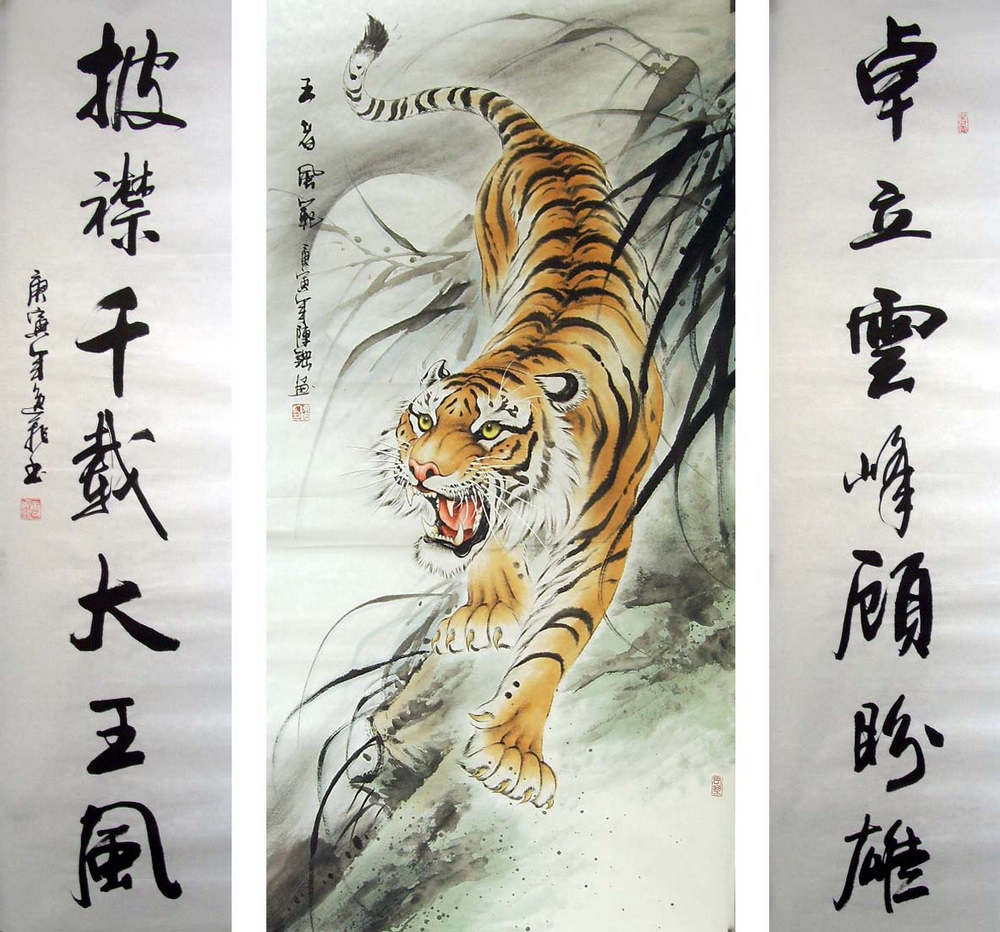 卓立雲峰顧盼雄
王者風範
庚寅年陳
披襟千載大王風
庚寅年